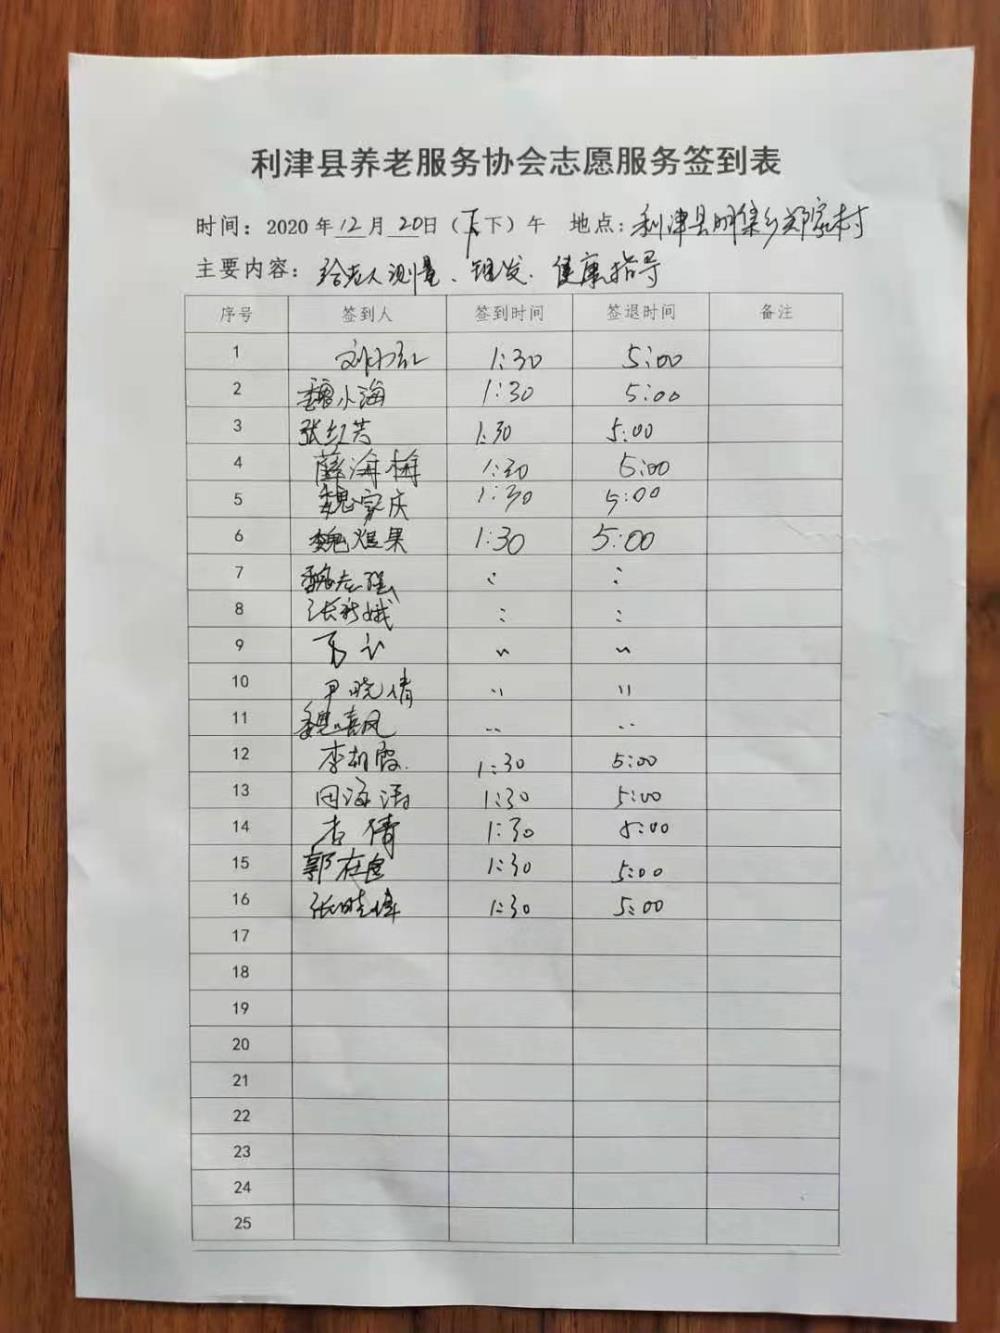 利津县养老服务协会志愿服务签到表
时间：2020年12月20日（下下）午 地点：利津县明集乡郑家村
主要内容：给老人测量、理发、健康指导
序号 签到人 签到时间 签退时间 备注
1 1:30 5:00
2 魏小海 1:30 5:00
3 张红芳 1:30 5:00
4 薛海梅 1:30 5:00
5 魏家庆 1:30 5:00
6 魏煜果 1:30 5:00
7 魏志强 : :
8 张新娥 : :
9 〃 〃
10 尹晓倩 〃 〃
11 魏喜凤 〃 〃
12 李朝霞 1:30 5:00
13 田海洁 1:30 5:00
14 倩 1:30 5:00
15 郭在 1:30 5:00
16 张晓峰 1:30 5:00
17
18
19
20
21
22
23
24
25